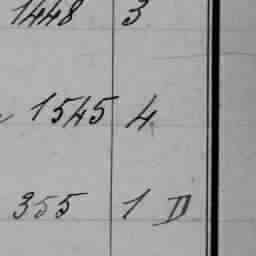 1448 3
1545 4
355 1 D